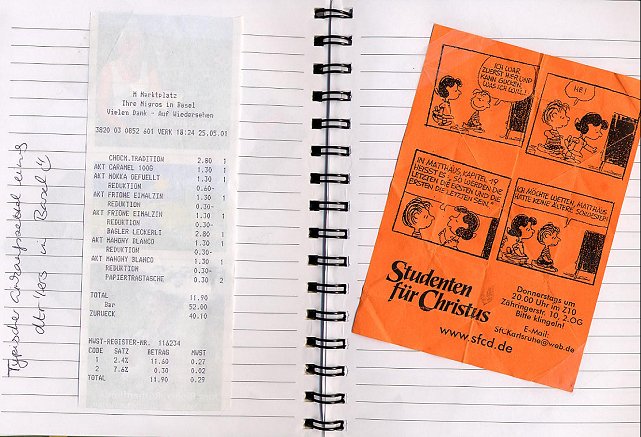 Typischer
in Basel
M Marktplatz
Ihre Migros in Basel
Vielen Dank - Auf Wiedersehen
3820 03 0852 601 VERK 18:24 25.05.01
CHOCM.TRADITION 2.80 1
AKT CARAMEL 100G 1.30 1
AKT MOKKA GEFUELLT 1.30 1
REDUKTION 0.60-
AKT FRIONE EIMALZIN 1.30 1
REDUKTION 0.30-
AKT FRIONE EIMALZIN 1.30 1
REDUKTION 0.30-
BASLER LECKERLI 2.80 1
AKT MAHONY BLANCO 1.30 1
REDUKTION 0.30-
AKT MAHONY BLANCO 1.30 1
REDUKTION 0.30-
PAPIERTRASTASCHE 0.30 2
TOTAL 11.90
Bar 52.00
ZURUECK 40.10
MWST-REGISTER-NR. 116234
CODE SATZ BETRAG MWST
1 2.4% 11.60 0.27
2 7.6% 0.30 0.02
TOTAL 11.90 0.29
ICH WAR
ZUERST HIER UND
KANN GUCKEN,
WAS ICH WILL!
HE!
IN MATTHÄUS, KAPITEL 19
HEISST ES: "SO WERDEN DIE
LETZTEN DIE ERSTEN UND DIE
ERSTEN DIE LETZTEN SEIN."
ICH MÖCHTE WETTEN, MATTHÄUS
HATTE KEINE ÄLTERE SCHWESTER!
Studenten
für Christus
Donnerstags um
20.00 Uhr im Z10
Zähringerstr. 10, 2.OG
Bitte klingeln!
E-Mail:
SfcKarlsruhe@web.de
www.sfcd.de